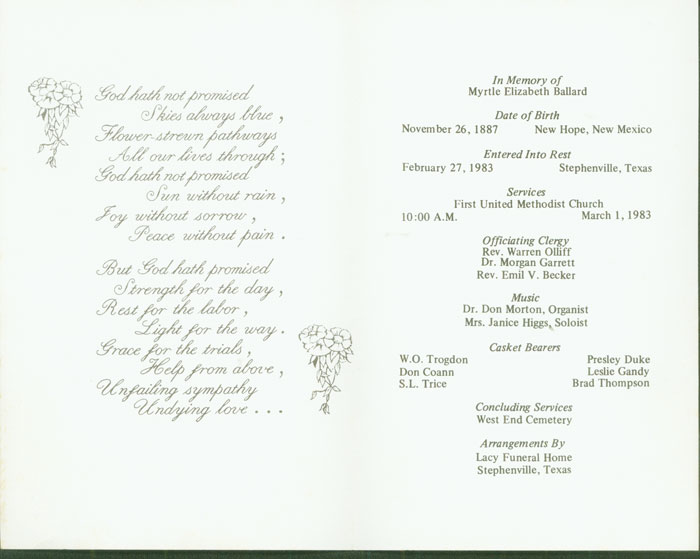 God hath not promised
Skies always blue,
Flower-strewn pathways
All our lives through;
God hath not promised
Sun without rain,
Joy without sorrow,
Peace without pain.
But God hath promised
Strength for the day,
Rest for the labor,
Light for the way.
Grace for the trials,
Help from above,
Unfailing sympathy
Undying love...
In Memory of
Myrtle Elizabeth Ballard
Date of Birth
November 26, 1887 New Hope, New Mexico
Entered Into Rest
February 27, 1983 Stephenville, Texas
Services
First United Methodist Church
10:00 A.M. March 1, 1983
Officiating Clergy
Rev. Warren Olliff
Dr. Morgan Garrett
Rev. Emil V. Becker
Music
Dr. Don Morton, Organist
Mrs. Janice Higgs, Soloist
Casket Bearers
W.O. Trogdon Presley Duke
Don Coann Leslie Gandy
S.L. Trice Brad Thompson
Concluding Services
West End Cemetery
Arrangements By
Lacy Funeral Home
Stephenville, Texas